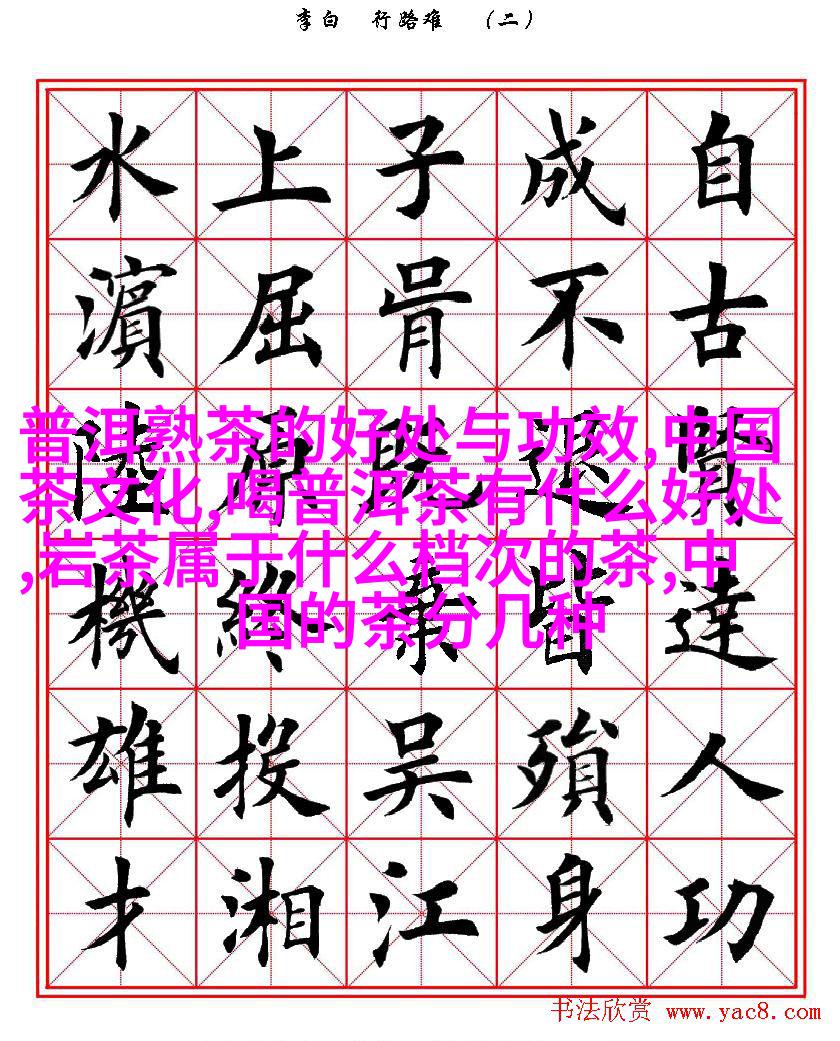 李白 行路难 （二）
自古賢達人功
成不退皆殞身
子胥既棄吴江
上屈原終投湘
水濱陸機雄才
普洱熟茶的好处与功效,中国
茶文化,喝普洱茶有什么好处
,岩茶属于什么档次的茶,中
国的茶分几种
书法欣赏 www.yac8.com